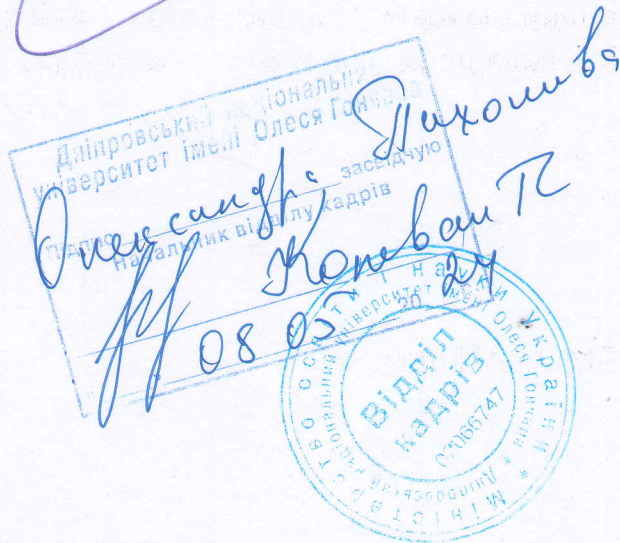 Дніпровський національний
університет імені Олеся Гончара
Олександра
Підпис засвідчую
Начальник відділу кадрів
08 05 20 24
Міністерство освіти і науки України
Дніпровський національний університет імені Олеся Гончара
Відділ
кадрів
02066747